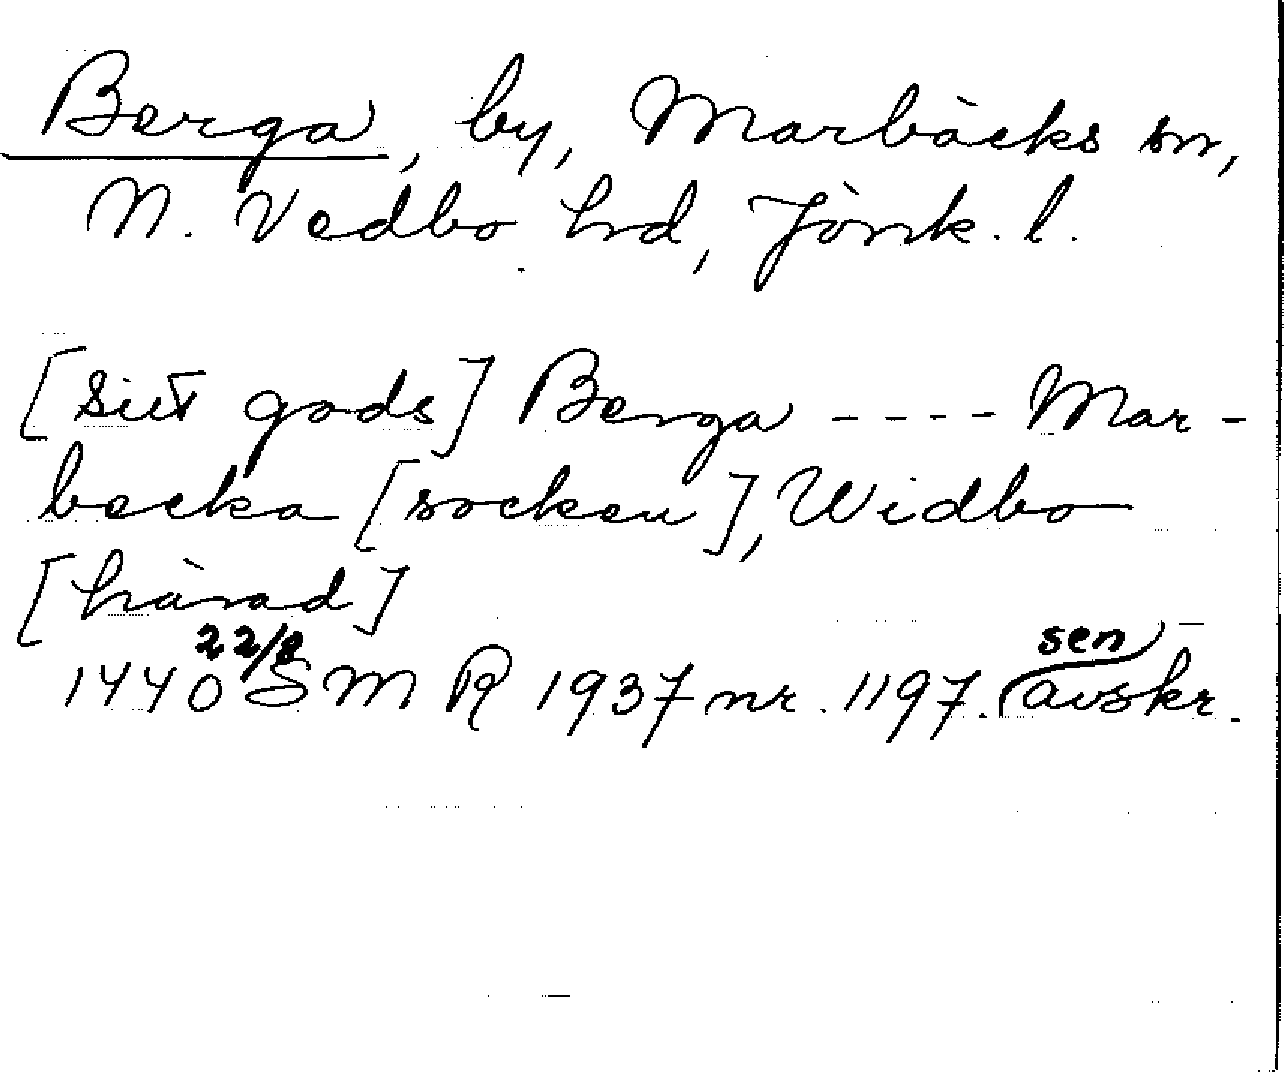 Berga, by, Marbäcks sn,
N. Vedbo hd, Jönk. l.
[sitt gods] Berga ---- Mar-
becka [socken], Widbo
[härad]
1440 22/8 SMR 1937 nr. 1197. sen avskr.